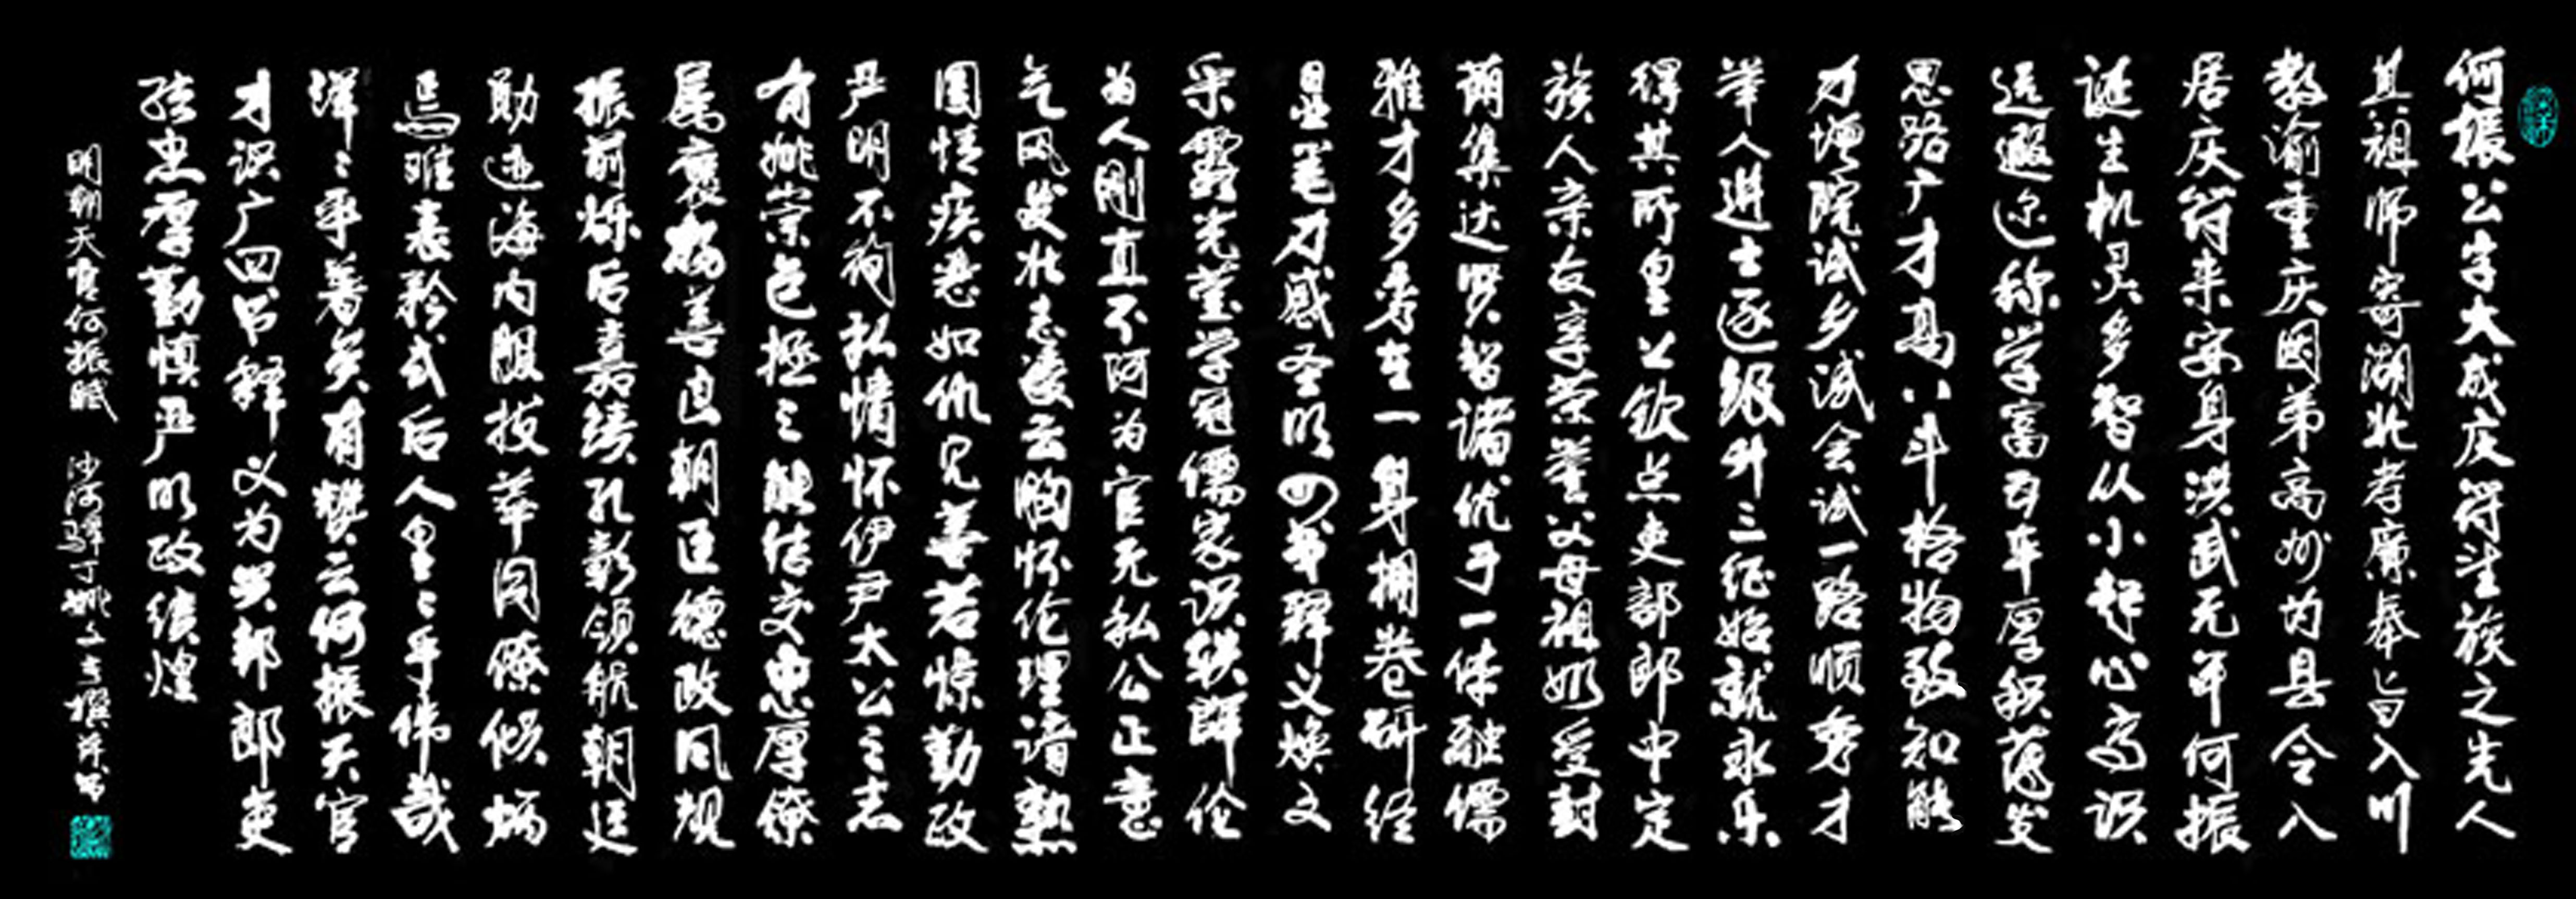 何振公字大成庆符望族之先人
其祖师寄湖北孝廉奉旨入川
教渝重庆因弟高州为县令入
居庆符来安身洪武元年何振
诞生机灵多智从小起心高识
远遐迩称学富五车厚积薄发
思路广才高八斗格物致知能
力增院试乡试会试一路顺秀才
举人进士逐级升三征始就永乐
得其所皇公钦点吏部郎中定
族人亲友享荣誉父母祖奶受封
荫集达贤智诸优于一体融儒
雅才多秀在一身拥卷研经
显笔力感圣明四书释义焕文
采露光莹学冠儒家识轶群伦
为人刚直不阿为官无私公正意
气风发壮志凌云胸怀伦理谙熟
国情疾恶如仇见善若惊勤政
严明不徇私情怀伊尹太公之志
有姚崇包拯之能结交忠厚僚
属褒扬善良朝臣德政同规
振前烁后嘉绩孔彰领航朝廷
勋迹海内服拔萃同僚倾炳
焉唯表矜式后人皇皇乎伟哉
洋洋乎著矣有赞云何振天官
才识广四书释义为兴邦郎吏
清忠厚勤慎严明政绩煌
明朝天官何振赋 沙河驿丁姚文字撰并书